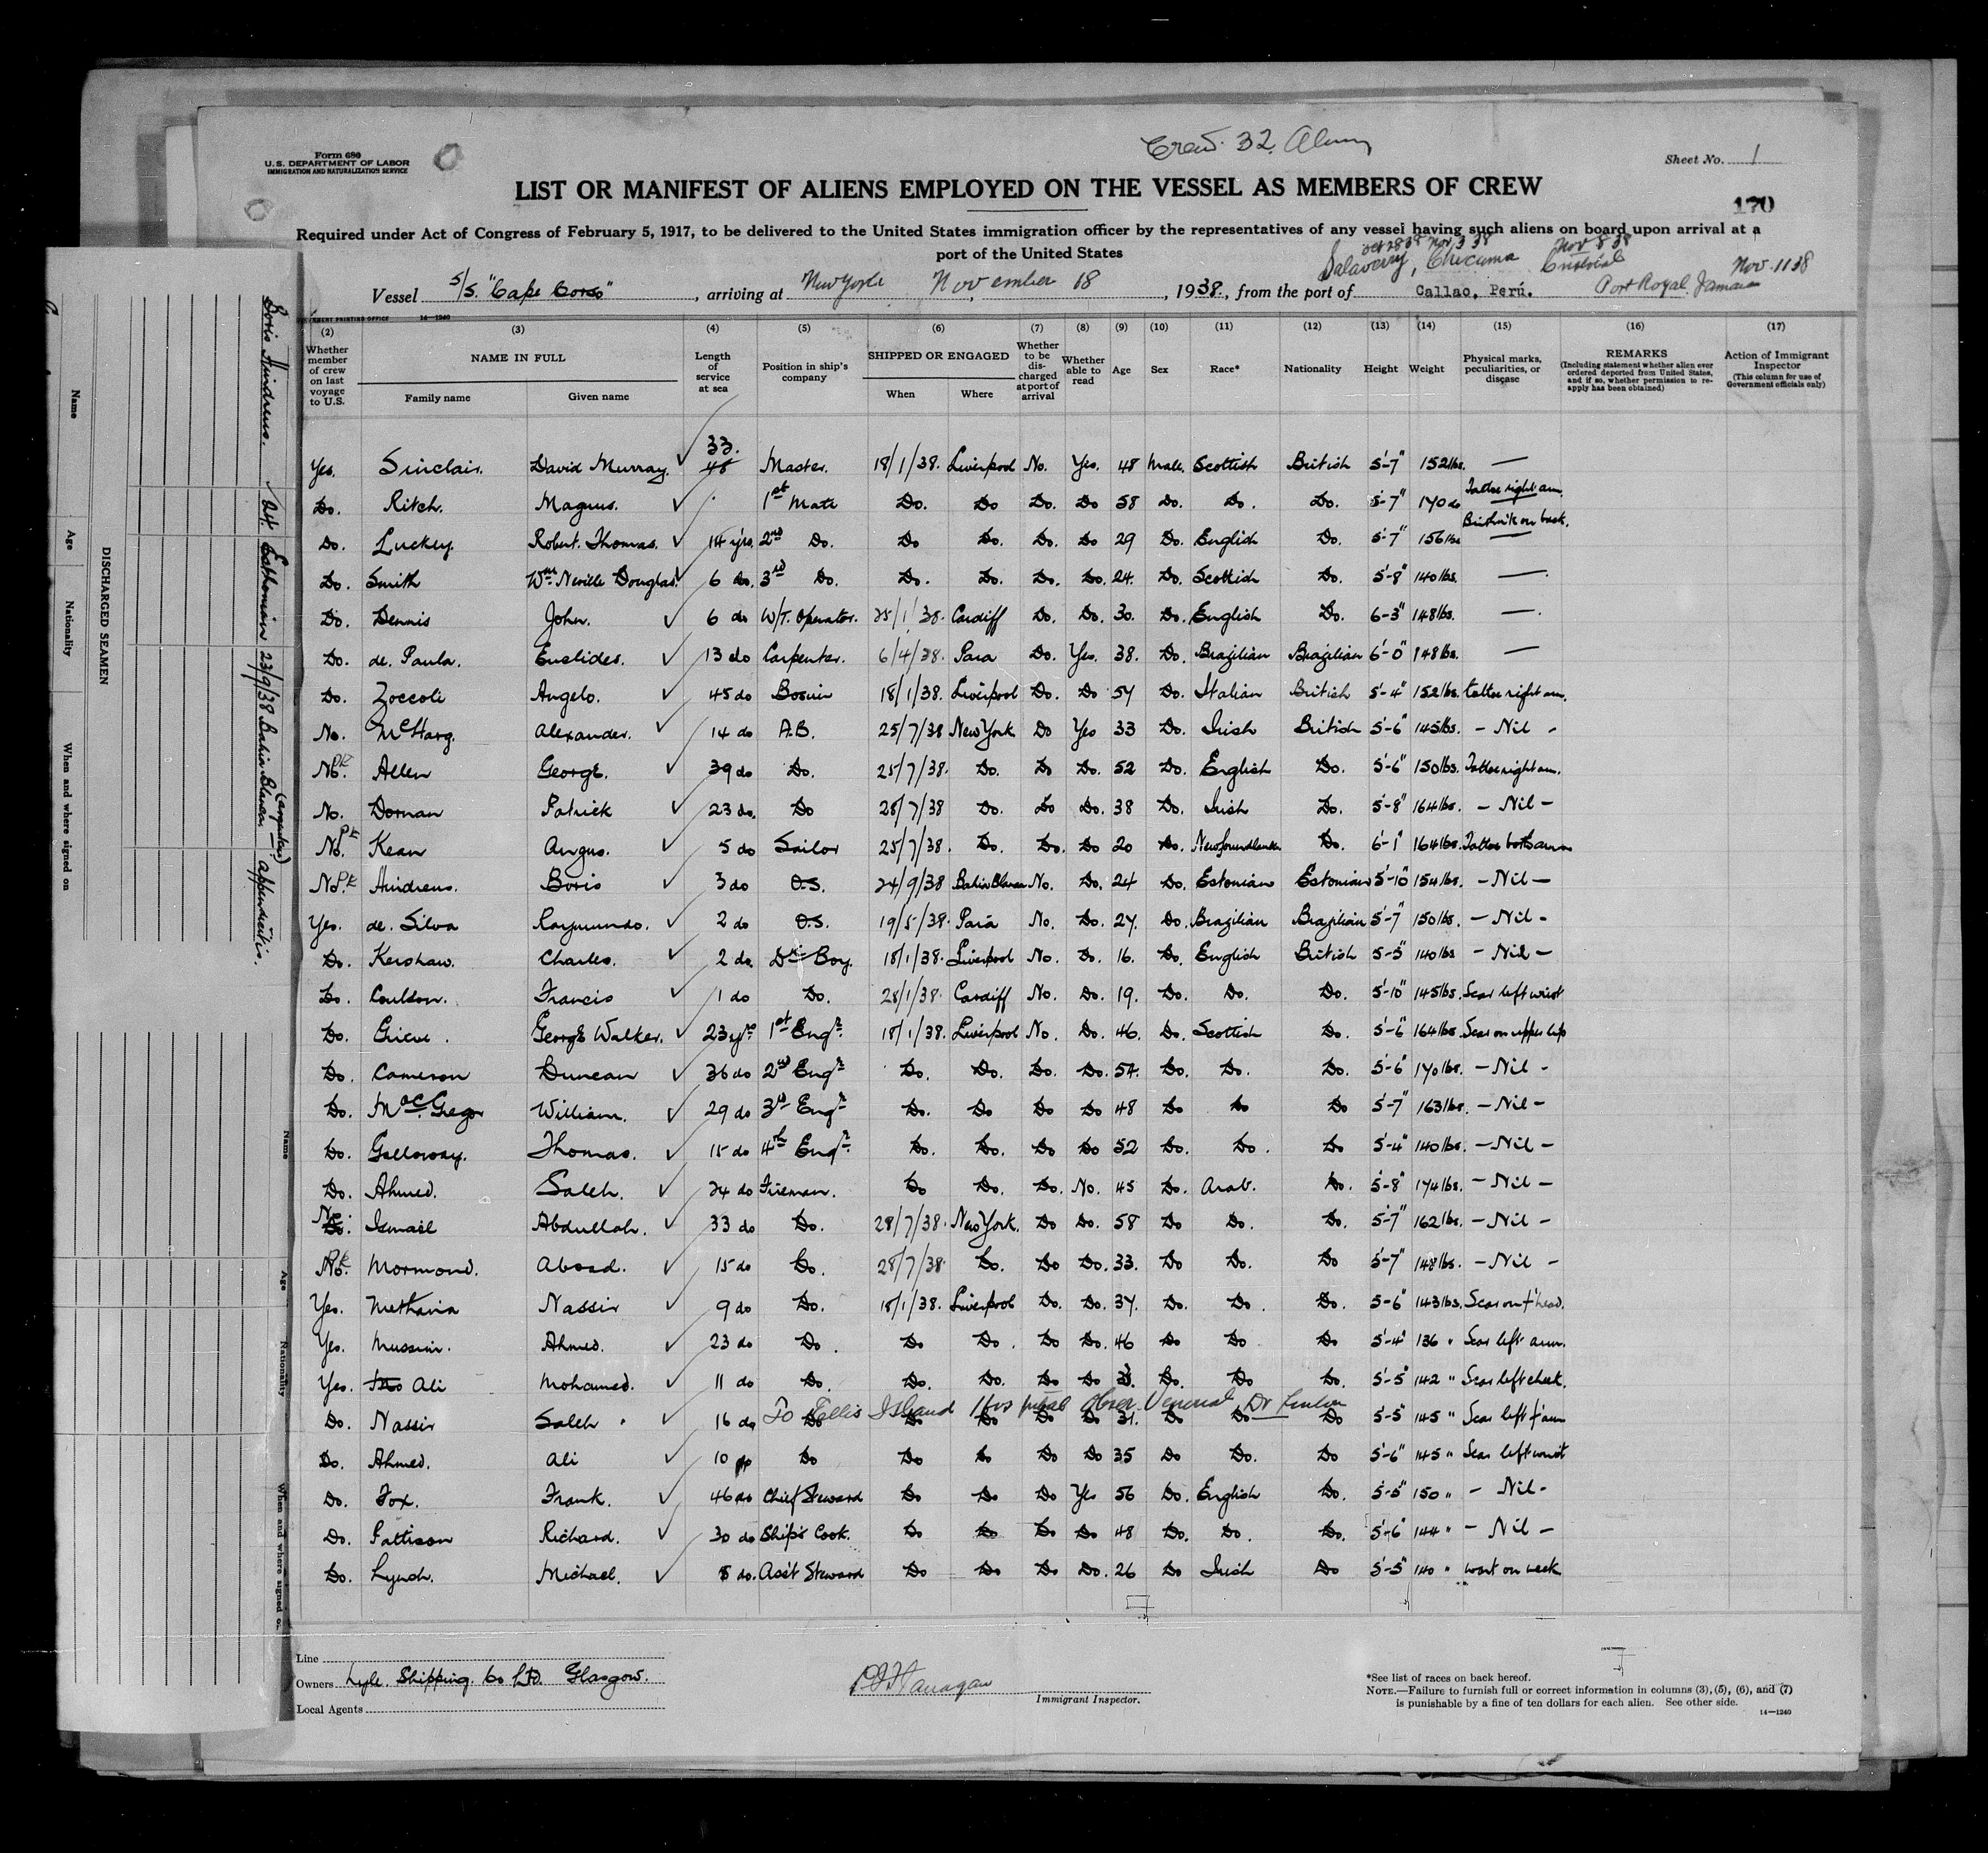 Crew. 32. Aliens
Form 680
U.S. DEPARTMENT OF LABOR
IMMIGRATION AND NATURALIZATION SERVICE
Sheet No. 1
LIST OR MANIFEST OF ALIENS EMPLOYED ON THE VESSEL AS MEMBERS OF CREW
170
Required under Act of Congress of February 5, 1917, to be delivered to the United States immigration officer by the representatives of any vessel having such aliens on board upon arrival at a
port of the United States
Oct 28 38 Nov 3 38 Nov 8 38
Salaverry, Chicama Cristobal Nov. 11 38
Vessel S/S. "Cape Corso", arriving at New York November 18, 1938., from the port of Callao, Perú. Port Royal. Jamaica
GOVERNMENT PRINTING OFFICE 14—1240
(2) (3) (4) (5) (6) (7) (8) (9) (10) (11) (12) (13) (14) (15) (16) (17)
Whether member of crew on last voyage to U.S. NAME IN FULL Family name Given name Length of service at sea Position in ship's company SHIPPED OR ENGAGED When Where Whether to be discharged at port of arrival Whether able to read Age Sex Race* Nationality Height Weight Physical marks, peculiarities, or disease REMARKS (Including statement whether alien ever ordered deported from United States, and if so, whether permission to reapply has been obtained) Action of Immigrant Inspector (This column for use of Government officials only)
33.
Yes. Sinclair. David Murray. ✓ 48 Master. 18/1/38. Liverpool No. Yes. 48 Male. Scottish British 5'-7" 152lbs. —
Do. Ritch. Magnus. ✓ 1st Mate Do. Do Do. Do 58 Do. Do. Do. 5'-7" 170 do Tattoo right arm.
Birthmk on back.
Do. Luckey. Robert. Thomas. ✓ 14 yrs. 2nd Do. Do Do. Do. Do 29 Do. English Do. 5'-7" 156lbs —
Do. Smith Wm Neville Douglas. ✓ 6 do. 3rd Do. Do. Do. Do. Do. 24. Do. Scottish Do. 5'-8" 140lbs. —
Do. Dennis John. ✓ 6 do W/T. Operator. 25/1/38. Cardiff Do. Do. 30. Do. English Do. 6-3" 148lbs. —
Do. de. Paula. Euclides. ✓ 13 do Carpenter. 6/4/38. Para Do. Yes. 38. Do. Brazilian Brazilian 6'-0" 148lbs. —
Do. Zoccoli Angelo. ✓ 45 do Bosun 18/1/38. Liverpool Do. Do 54 Do. Italian British 5'-4" 152lbs. tattoo right arm.
No. McHarg. Alexander. ✓ 14 do A.B. 25/7/38 New York Do Yes 33 Do. Irish British 5'-6" 145lbs. - Nil -
No. Allen George. ✓ 39 do Do. 25/7/38. Do. Do Do. 52 Do. English Do. 5'-6" 150lbs. Tattoo right arm.
No. Dornan Patrick ✓ 23 do. Do 28/7/38 Do. Do Do. 38 Do. Irish Do. 5'-8" 164lbs. - Nil -
No. Kean Angus. ✓ 5 do Sailor 25/7/38. Do. Do. Do 20 Do. Newfoundlander Do. 6'-1" 164lbs. Tattoo both arms
No. Hindreus. Boris ✓ 3 do O.S. 24/9/38 Bahia Blanca No. Do. 24 Do. Estonian Estonian 5'-10" 154lbs. - Nil -
Yes. de. Silva Raymundo. ✓ 2 do O.S. 19/5/38. Para No. Do. 27. Do. Brazilian Brazilian 5'-7" 150lbs. - Nil -
Do. Kershaw. Charles. ✓ 2 do. Dk Boy. 18/1/38. Liverpool No. Do. 16. Do. English British 5-5" 140lbs - Nil -
Do. Coulson. Francis ✓ 1 do Do. 28/1/38. Cardiff No. Do. 19. Do. Do. Do. 5'-10" 145lbs. Scar left wrist
Do. Grieve. George Walker. ✓ 23 yrs 1st Engr. 18/1/38. Liverpool No. Do. 46. Do. Scottish Do. 5'-6" 164lbs. Scar on upper lip
Do. Cameron Duncan ✓ 36 do 2nd Engr Do. Do. Do. Do. 54. Do. Do. Do. 5'-6" 170lbs. - Nil -
Do. MacGregor William. ✓ 29 do 3rd Engr Do. Do Do Do 48 Do Do Do 5'-7" 163lbs. - Nil -
Do. Galloway. Thomas. ✓ 15 do 4th Engr. Do. Do. Do Do 52 Do. Do. Do 5'-4" 140lbs. - Nil -
Do. Ahmed. Saleh. ✓ 24 do Fireman. Do Do. Do. No. 45 Do. Arab. Do. 5'-8" 174lbs. - Nil -
No. Ismail Abdullah. ✓ 33 do Do. 28/7/38. New York. Do Do. 58 Do Do. Do. 5'-7" 162lbs. - Nil -
No. Mormond. Aboad. ✓ 15 do Do. 28/7/38. Do. Do Do. 33. Do Do. Do 5'-7" 148lbs. - Nil -
Yes. Methana Nassir ✓ 9 do Do. 18/1/38. Liverpool Do. Do. 37. Do. Do. Do. 5-6" 143lbs. Scar on f'head.
Yes. Mussin. Ahmed. ✓ 23 do Do. Do Do. Do Do. 46 Do Do Do 5'-4" 136 " Scar left arm.
Yes. Ali Mohamed. ✓ 11 do Do. Do. Do. Do Do Do. Do Do. 5'-5" 142 " Scar left cheek.
To Ellis Island Hospital Obser. Venereal Dr
Do. Nassir Saleh. ✓ 16 do Do Do Do Do Do 31. Do Do Do 5'-5" 145 " Scar left f'arm
Do. Ahmed. Ali ✓ 10 Do Do Do Do Do 35 Do Do. Do 5'-6" 145 " Scar left wrist
Do. Fox. Frank. ✓ 46 do Chief Steward Do Do Do Yes 56 Do. English Do. 5'-5" 150 " - Nil -
Do. Pattison Richard. ✓ 30 do Ship's Cook. Do Do Do Do 48 Do. Do. Do. 5'-6" 144 " - Nil -
Do. Lynch. Michael. ✓ 5 do. Ass't Steward Do Do Do Do. 26 Do Irish Do 5'-5" 140 " wart on neck
Line
Owners Lyle. Shipping. Co Ltd. Glasgow.
Local Agents
Immigrant Inspector.
*See list of races on back hereof.
NOTE.—Failure to furnish full or correct information in columns (3), (5), (6), and (7)
is punishable by a fine of ten dollars for each alien. See other side.
14—1240
DISCHARGED SEAMEN
Name Age Nationality When and where signed on
Boris Hindreus. 24. Esthonian 23/9/38 Bahia Blanca (Argentina) Appendicitis.
Name Age Nationality When and where signed on